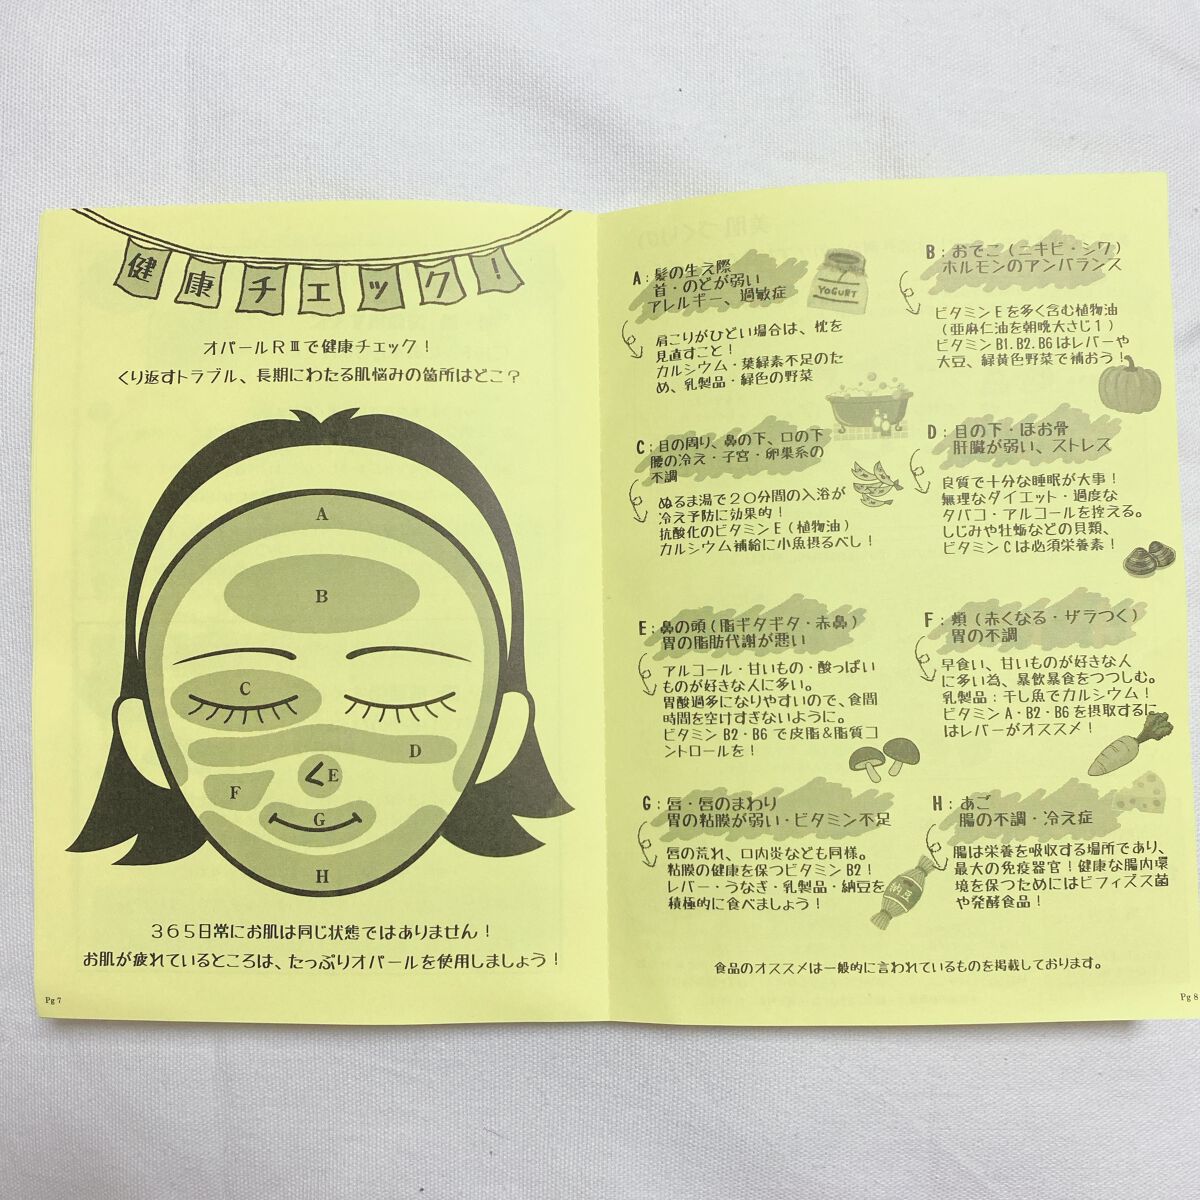 健康チェック!
オパールRⅢで健康チェック!
くり返すトラブル、長期にわたる肌悩みの箇所はどこ?
A
B
C
D
E
F
G
H
365日常にお肌は同じ状態ではありません!
お肌が疲れているところは、たっぷりオパールを使用しましょう!
Pg 7
A:髪の生え際
首・のどが弱い
アレルギー、過敏症
YOGURT
肩こりがひどい場合は、枕を
見直すこと!
カルシウム・葉緑素不足のた
め、乳製品・緑色の野菜
B:おでこ(ニキビ・シワ)
ホルモンのアンバランス
ビタミンEを多く含む植物油
(亜麻仁油を朝晩大さじ1)
ビタミンB1.B2.B6はレバーや
大豆、緑黄色野菜で補おう!
C:目の周り、鼻の下、口の下
腰の冷え・子宮・卵巣系の
不調
ぬるま湯で20分間の入浴が
冷え予防に効果的!
抗酸化のビタミンE(植物油)
カルシウム補給に小魚摂るべし!
D:目の下・ほお骨
肝臓が弱い、ストレス
良質で十分な睡眠が大事!
無理なダイエット・過度な
タバコ・アルコールを控える。
しじみや牡蛎などの貝類、
ビタミンCは必須栄養素!
E:鼻の頭(脂ギタギタ・赤鼻)
胃の脂肪代謝が悪い
アルコール・甘いもの・酸っぱい
ものが好きな人に多い。
胃酸過多になりやすいので、食間
時間を空けすぎないように。
ビタミンB2・B6で皮脂&脂質コ
ントロールを!
F:頬(赤くなる・ザラつく)
胃の不調
早食い、甘いものが好きな人
に多い為、暴飲暴食をつつしむ。
乳製品:干し魚でカルシウム!
ビタミンA・B2・B6を摂取するに
はレバーがオススメ!
G:唇・唇のまわり
胃の粘膜が弱い・ビタミン不足
唇の荒れ、口内炎なども同様。
粘膜の健康を保つビタミンB2!
レバー・うなぎ・乳製品・納豆を
積極的に食べましょう!
納豆
H:あご
腸の不調・冷え症
腸は栄養を吸収する場所であり、
最大の免疫器官!健康な腸内環
境を保つためにはビフィズス菌
や発酵食品!
食品のオススメは一般的に言われているものを掲載しております。
Pg 8